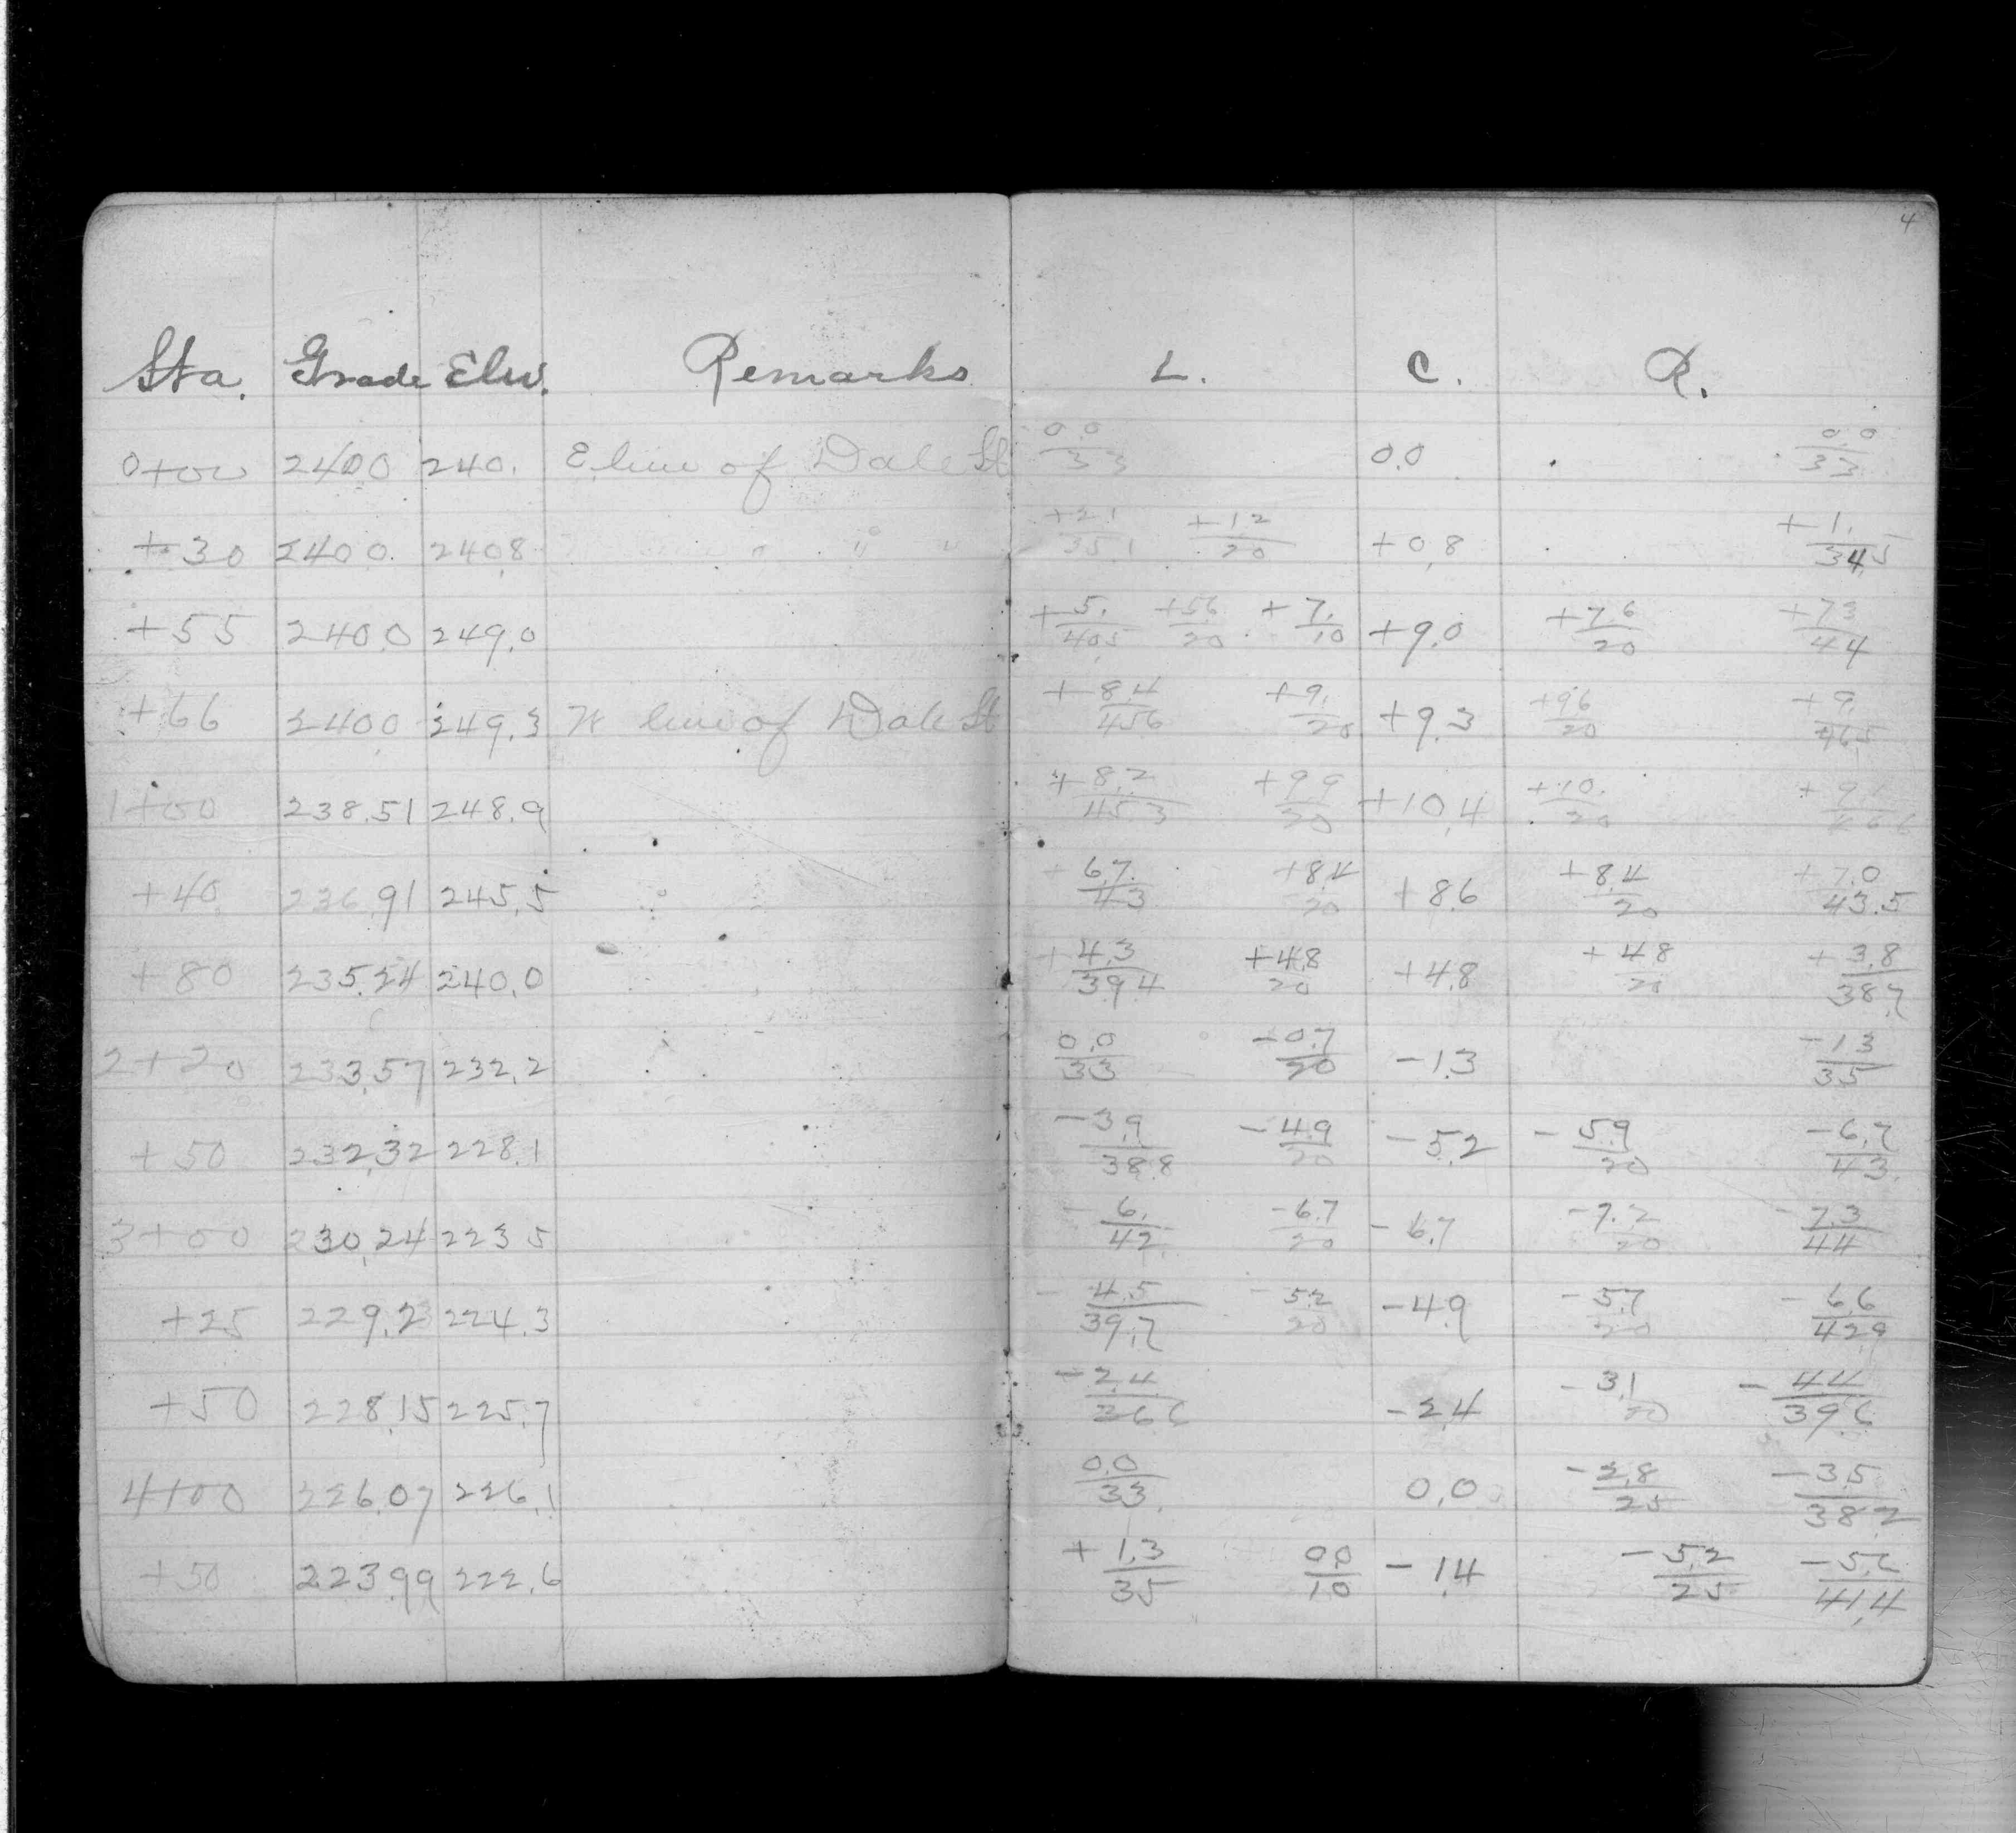 4
Sta. Grade Elev. Remarks L. C. R.
0+00 240.0 240. E line of Dale St 0.0/33 0.0 0.0/33
+30 240.0 240.8 " " +2.1/35.1 +1.2/20 +0.8 +1./34.5
+55 240.0 249.0 +5./40.5 +5.6/20 +7./10 +9.0 +7.6/20 +7.3/44
+66 240.0 249.3 W line of Dale St +8.4/45.6 +9./20 +9.3 +9.6/20 +9./46.5
1+00 238.51 248.9 +8.2/45.3 +9.9/20 +10.4 +10./20
+40 236.91 245.5 +6.7/43 +8.4/20 +8.6 +8.4/20 +7.0/43.5
+80 235.24 240.0 +4.3/39.4 +4.8/20 +4.8 +4.8/20 +3.8/38.7
2+20 233.57 232.2 0.0/33 -0.7/20 -1.3 -1.3/35
+50 232.32 228.1 -3.9/38.8 -4.9/20 -5.2 -5.9/20 -6.7/43.
3+00 230.24 223.5 -6./42. -6.7/20 -6.7 -7.2/20 -7.3/44
+25 229.2 224.3 -4.5/39.7 -5.2/20 -4.9 -5.7/20 -6.6/42.9
+50 228.15 225.7 -2.4/36.6 -2.4 -3.1/20 -4.4/39.6
4+00 226.07 226.1 0.0/33. 0.0 -2.8/25 -3.5/38.2
+50 223.99 222.6 +1.3/35 0.0/10 -1.4 -5.2/25 -5.6/41.4